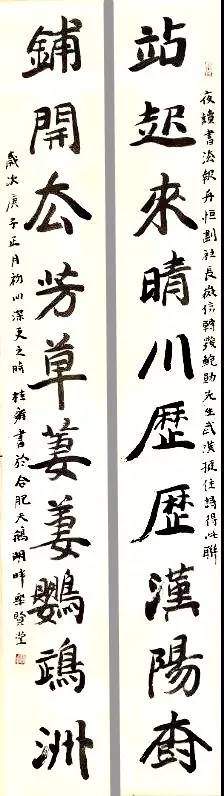 站起來晴川歷歷漢陽樹
夜讀書法報舟恒劃社長微信轉發鮑先生武漢挺住詩得此聯
鋪開去芳草萋萋鸚鵡洲
歲次庚子正月初四深更之時 桂雍書於合肥天鵝湖畔賢堂